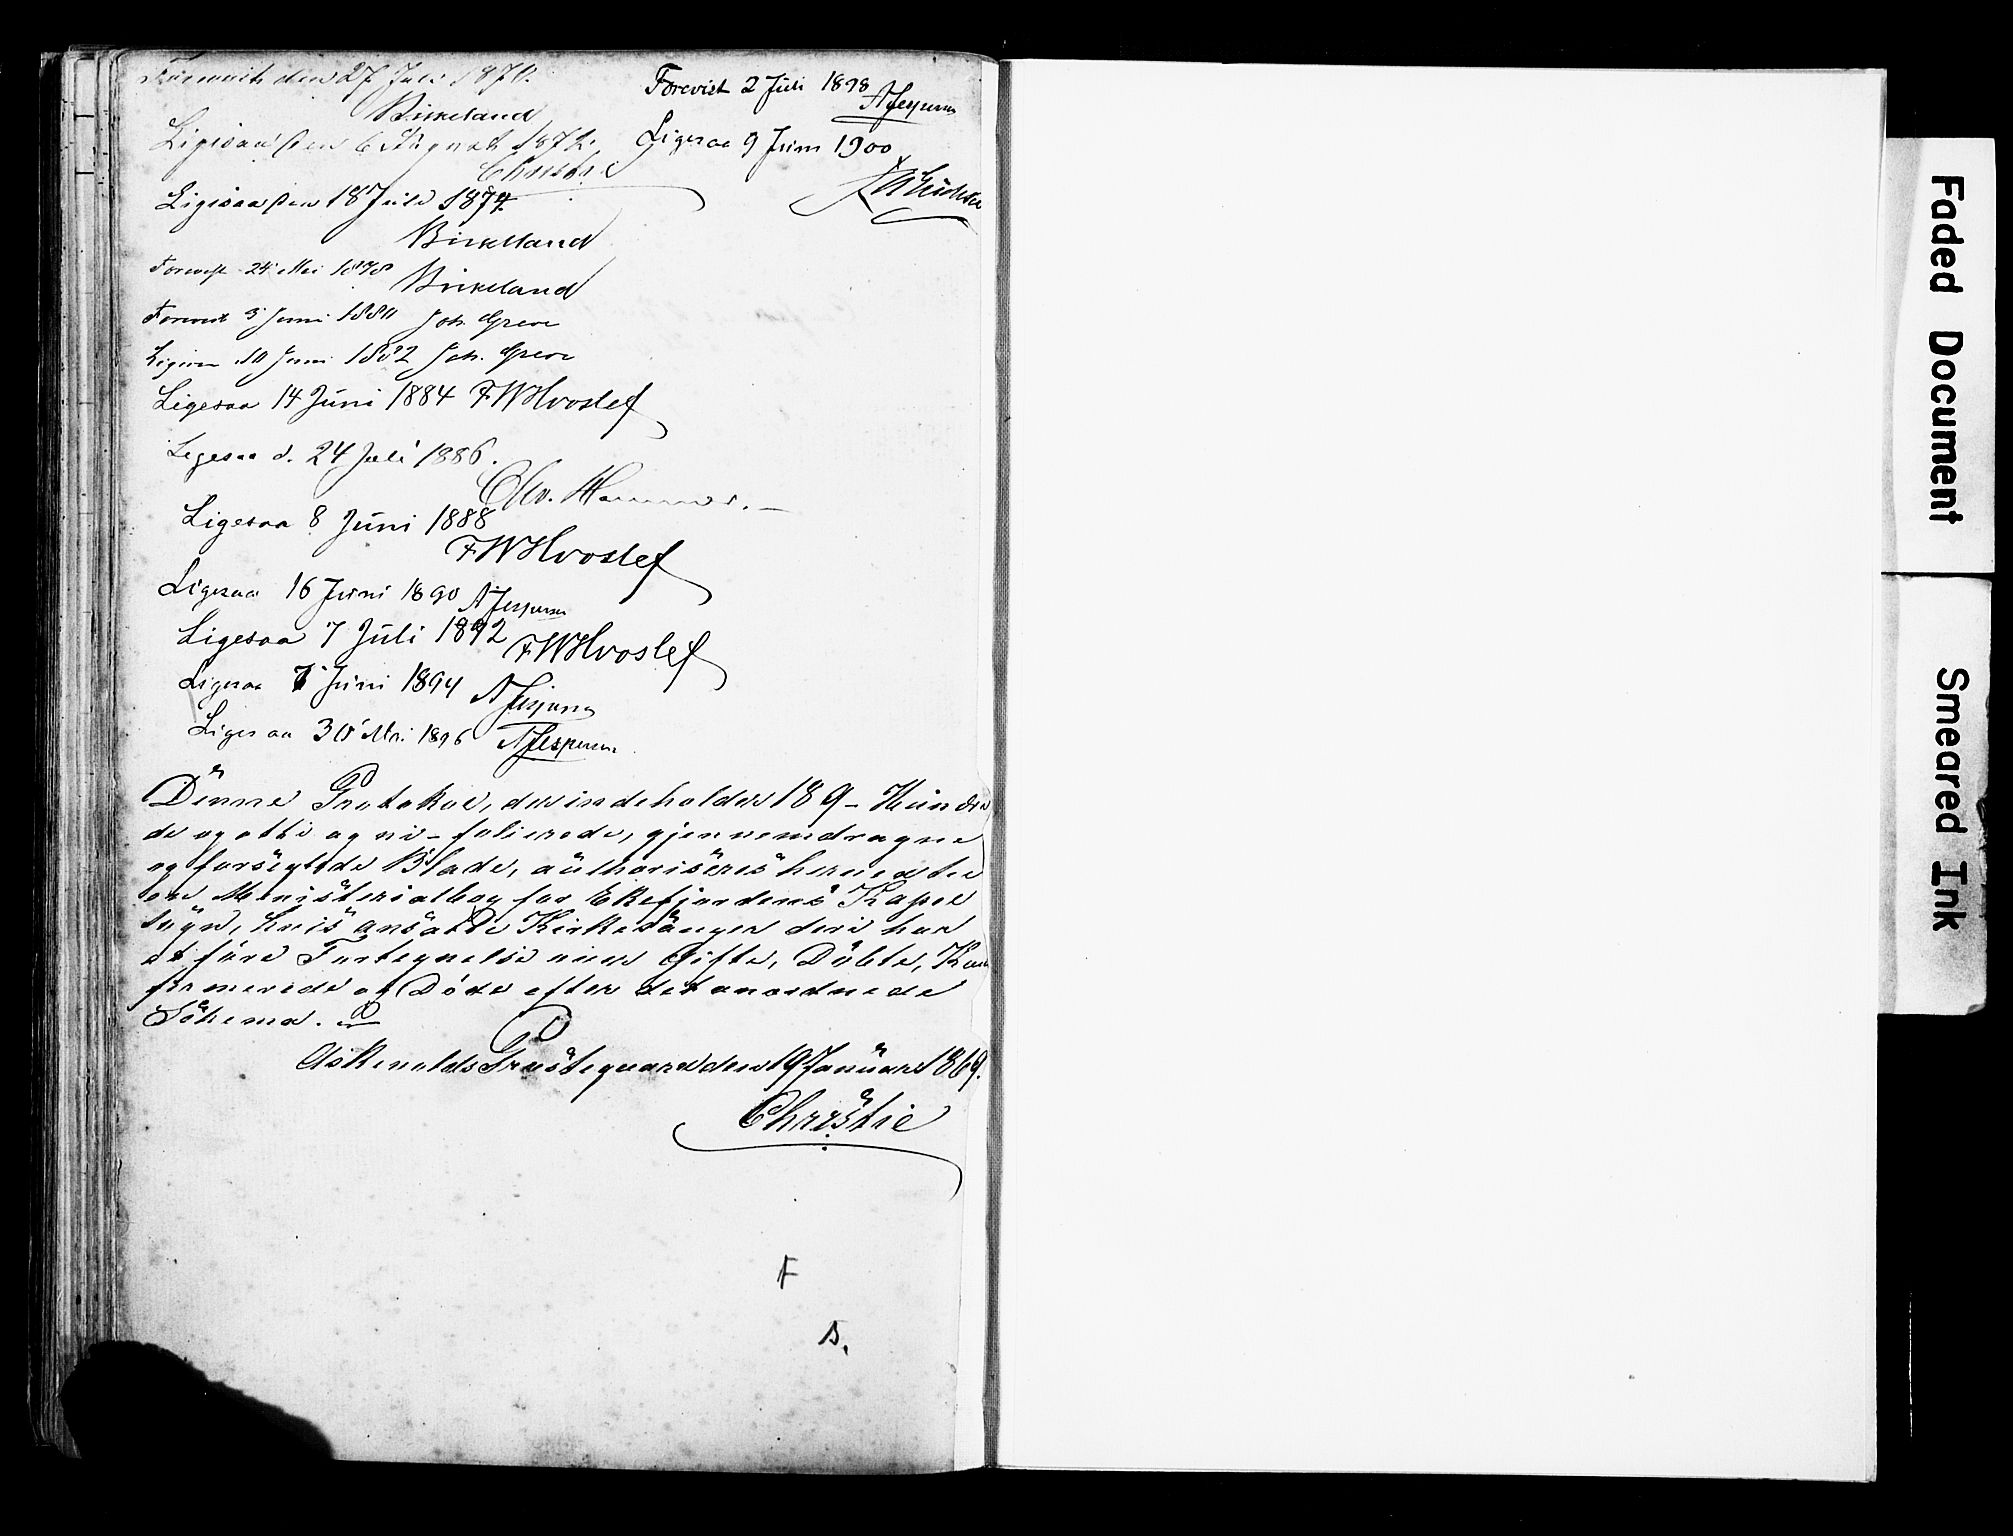 Forevist den 27 Juli 1870.
Birkeland
Ligesaa den 6 August 1872.
Christie
Ligesaa den 18 Juli 1874.
Birkeland
Forevist 24 Mai 1878
Birkeland
Forevist 5 Juni 1880 Joh. Greve
Ligesaa 10 Juni 1882 Joh. Greve
Ligesaa 14 Juni 1884 FWHvoslef
Ligesaa d. 24 Juli 1886.
Chr. Hammer.
Ligesaa 8 Juni 1888
FWHvoslef
Ligesaa 16 Juni 1890 AJespersen
Ligesaa 7 Juli 1892 FWHvoslef
Ligesaa 7 Juni 1894 AJespersen
Ligesaa 30 Mai 1896 AJespersen
Forevist 2 Juli 1898
AJespersen
Ligesaa 9 Juni 1900
Denne Protokol, der indeholder 189 - Hundre
de og otti og ni - folierede, gjennemdragne
og forseglede Blade, authoriseres herved til
en Ministerialbog for Ekefjordens Kapel
sogn, hvis ansatte Kirkesanger deri har
at føre Fortegnelse over Gifte, Döbte, Kon
firmerede og Döde efter det anordnede
Schema.
Askevolds Præstegaard den 19 Januar 1869.
Christie
F
S.
Faded Document
Smeared Ink